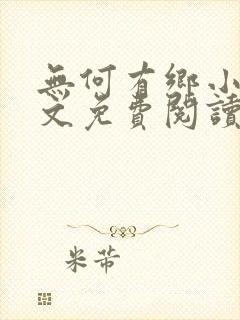 無何有鄉小
文免費閱讀
米芾